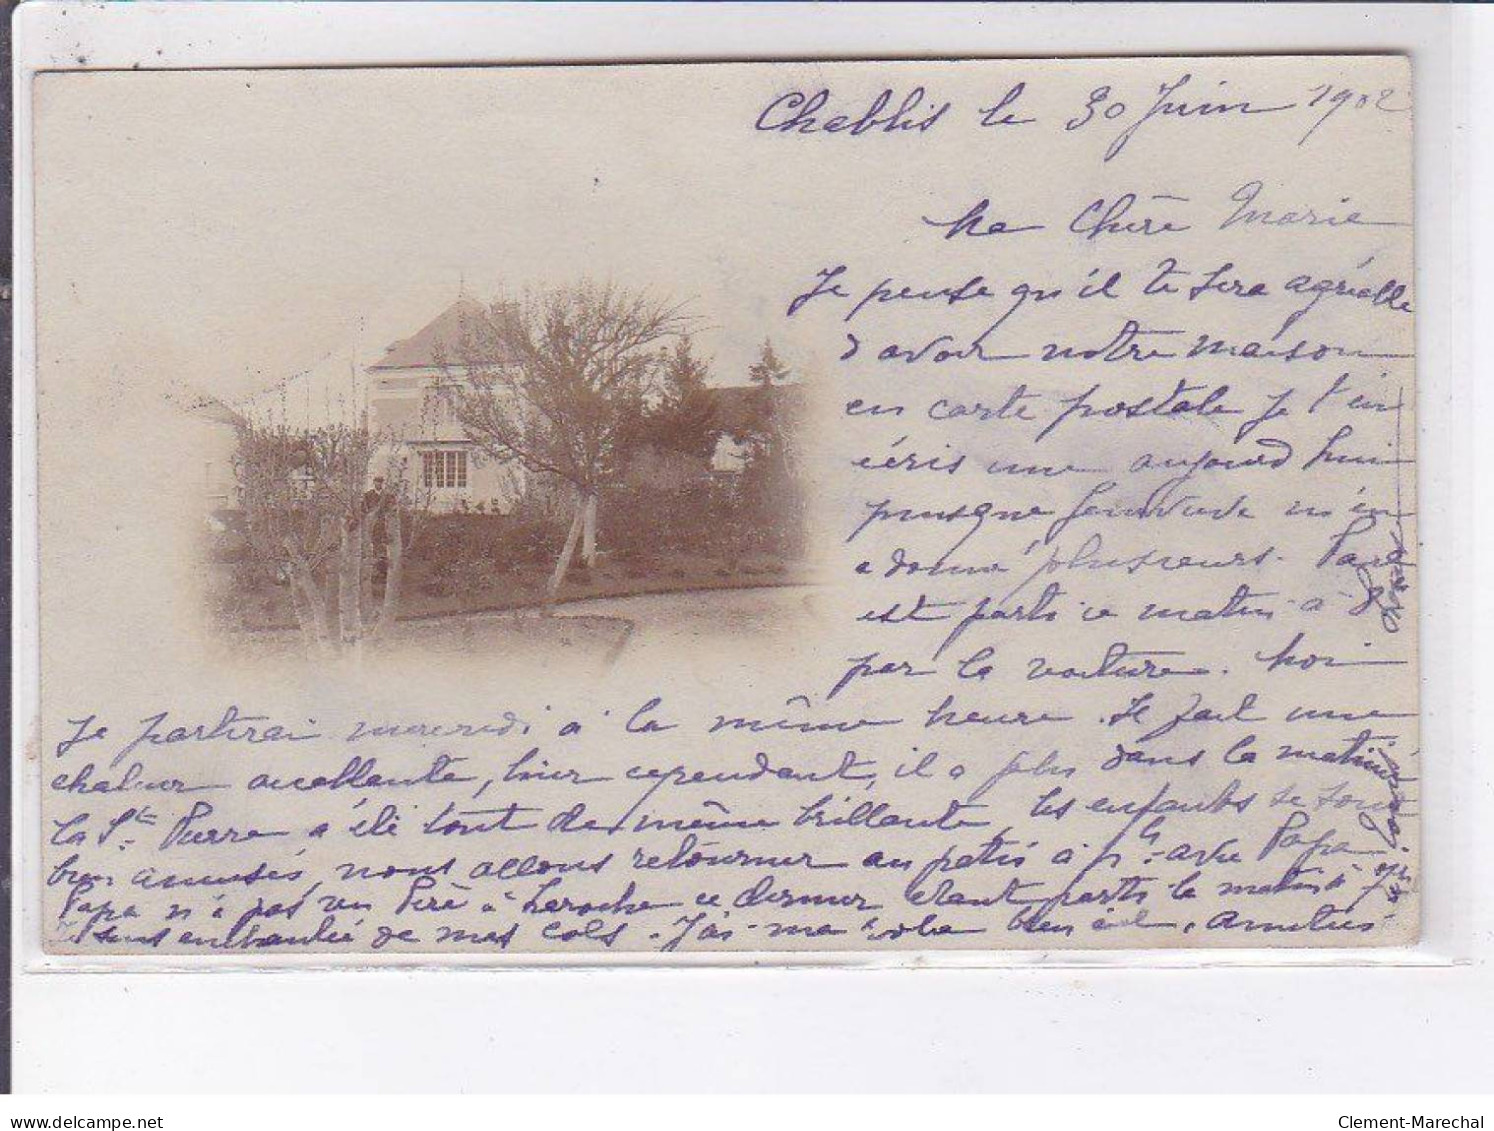 Chablis le 30 Juin 1902
Ma Chère Marie
Je pense qu'il te sera agréable
d'avoir notre maison
en carte postale je t'en
écris une aujourd'hui
puisque m'en
a donné plusieurs. Paul
est parti ce matin à 8
par la voiture. Moi
je partirai mercredi à la même heure. Il fait une
chaleur accablante, hier cependant, il a plu dans la matinée
La Ste Pierre a été tout de même brillante les enfants se sont
bien amusés, nous allons retourner au patis à h. avec Papa
Papa n'a pas vu Père à Laroche ce dernier étant parti le matin à 7h
Je suis enchantée de mes cols. J'ai ma robe bien . Amitiés
delcampe.net
Clement-Marechal